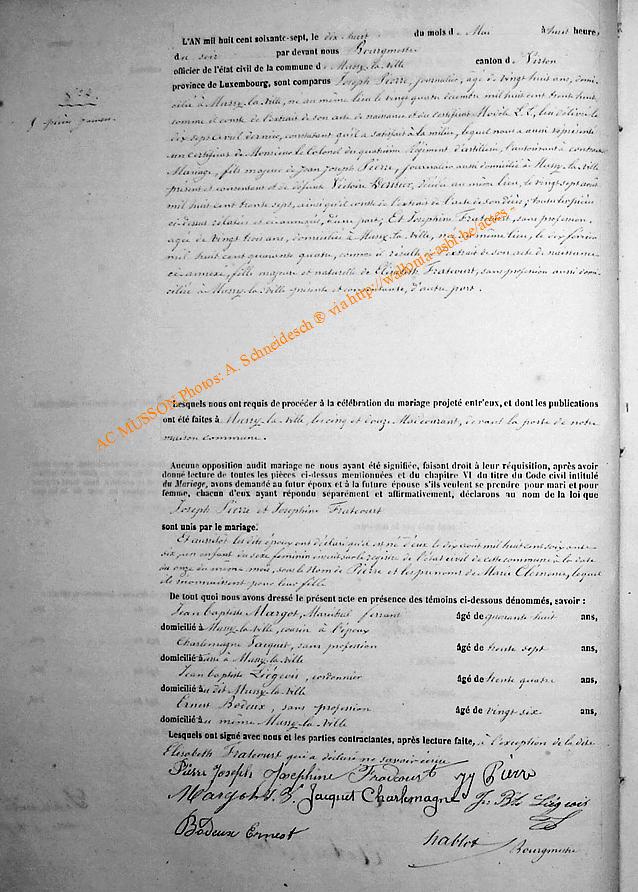 L'AN mil huit cent soixante-sept, le dix huit du mois d e Mai à huit heure,
du soir par devant nous Bourgmestre
officier de l'état civil de la commune d e Mussy-la-Ville canton d e Virton
province de Luxembourg, sont comparus Joseph Pierre, journalier, agé de vingt huit ans, domi-
cilié à Mussy-la-Ville, né au même lieu le vingt quatre décembre mil huit cent trente huit,
comme il conste de l'extrait de son acte de naissance et du certificat Modèle L.L. lui délivré le
dix sept avril dernier, constatant qu'il a satisfait à la milice, lequel nous a aussi représenté
un certificat de Monsieur le Colonel du quatrième Régiment d'artillerie, l'autorisant à contracter
Mariage, fils majeur de Jean Joseph Pierre, journalier aussi domicilié à Mussy-la-Ville
présent et consentant et de défunte Victoire décédée au même lieu, le vingt sept août
mil huit cent trente sept, ainsi qu'il conste de l'extrait de l'acte de son décès; toutes les pièces
ci-dessus relatées et ci-annexées, d'une part; Et Joséphine Fratcourt, sans profession,
agée de vingt trois ans, domiciliée à Mussy-la-Ville, née au même lieu, le dix février
mil huit cent quarante quatre, comme il résulte de l'extrait de son acte de naissance
ci-annexé, fille majeure et naturelle de Elisabeth Fratcourt, sans profession aussi domi-
ciliée à Mussy-la-Ville présente et consentante, d'autre part.
Lesquels nous ont requis de procéder à la célébration du mariage projeté entr'eux, et dont les publications
ont été faites à Mussy-la-Ville, les cinq et douze Mai courant, devant la porte de notre
maison commune.
Aucune opposition audit mariage ne nous ayant été signifiée, faisant droit à leur réquisition, après avoir
donné lecture de toutes les pièces ci-dessus mentionnées et du chapitre VI du titre du Code civil intitulé
du Mariage, avons demandé au futur époux et à la future épouse s'ils veulent se prendre pour mari et pour
femme, chacun d'eux ayant répondu séparément et affirmativement, déclarons au nom de la loi que
Joseph Pierre et Joséphine Fratcourt
sont unis par le mariage.
Et aussitôt les dits époux ont déclaré qu'il est né d'eux le dix août mil huit cent soixante
six, un enfant du sexe féminin inscrit sur le registre de l'état civil de cette commune à la date
du onze du même mois, sous le nom de Pierre et les prénoms de Marie Clémence, lequel
ils reconnaissent pour leur fille.
De tout quoi nous avons dressé le présent acte en présence des témoins ci-dessous dénommés, savoir :
Jean baptiste Margot, Maréchal ferrant âgé de quarante huit ans,
domicilié à Mussy-la-Ville, cousin à l'époux
Charlemagne Jacquet, sans profession âgé de trente sept ans,
domicilié à Mussy-la-Ville
Jean baptiste Liégeois, cordonnier âgé de trente quatre ans,
domicilié au dit Mussy-la-Ville
Ernest Bodeux, sans profession âgé de vingt six ans,
domicilié au même Mussy-la-Ville
Lesquels ont signé avec nous et les parties contractantes, après lecture faite, à l'exception de la dite
Elisabeth Fratcourt qui a déclaré ne savoir écrire
Pierre Joseph Josephine Fradcourt JJ Pierre
Margot J. B. Jacquet Charlemagne Jn Bte Liégeois
Bodeux Ernest hablot Bourgmestre
AC MUSSON Photos: A. Schneidesch ® via http://wallonia-asbl.be/actes -